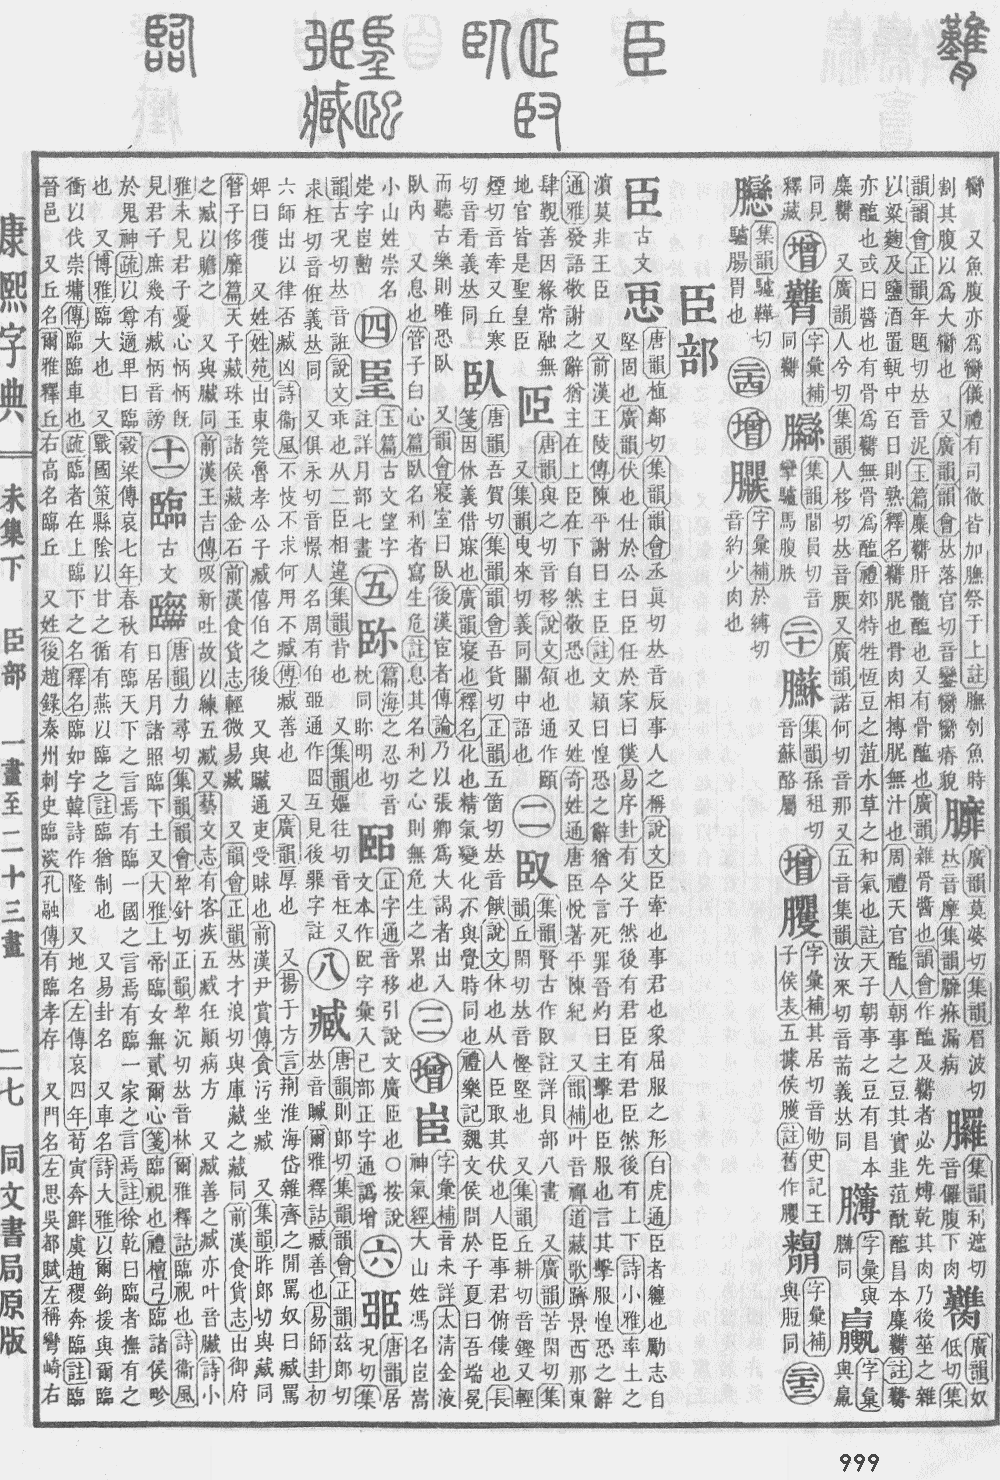 臠 又魚腹亦爲臠儀禮有司徹皆加膴祭于上註膴刳魚時
割其腹以爲大臠也 又廣韻韻會𠀤落官切音鑾臠臠瘠貌
廣韻莫婆切集韻眉波切
𠀤音摩集韻臁疥漏病
集韻利遮切
音儸腹下肉
臡 廣韻奴低切集
韻韻會正韻年題切𠀤音泥玉篇麋臡肝髓醢也又有骨醢也廣韻雜骨醬也韻會作醢及臡者必先膊乾其肉乃後莝之雜
以粱麴及鹽酒置甀中百日則熟釋名臡胒也骨肉相摶胒無汁也周禮天官醢人朝事之豆其實韭菹醓醢昌本麋臡註臡
亦醢也或曰醬也有骨爲臡無骨爲醢禮郊特牲恆豆之菹水草之和氣也註天子朝事之豆有昌本
麋臡 又廣韻人兮切集韻人移切𠀤音腝又廣韻諾何切音那又五音集韻汝來切音荋義𠀤同
字彙與
膊同
臝 字彙
與臝
同見
釋藏
增 字彙補
同臡
臠 集韻閭員切音
攣驢馬腹胅
二十 集韻孫祖切
音蘇酪屬
增 臞 字彙補其居切音劬史記王
子侯表五據侯臒註舊作臞
字彙補
與胆同
二三
集韻驢鞾切
驢腸胃也
二四 增 字彙補於縛切
音約少肉也
臣部
臣 古文 𢘑 唐韻植鄰切集韻韻會丞眞切𠀤音辰事人之稱說文臣牽也事君也象屈服之形白虎通臣者纏也勵志自
堅固也廣韻伏也仕於公曰臣任於家曰僕易序卦有父子然後有君臣有君臣然後有上下詩小雅率土之
濱莫非王臣 又前漢王陵傳陳平謝曰主臣註文穎曰惶恐之辭猶今言死罪晉灼曰主擊也臣服也言其擊服惶恐之辭
通雅發語敬謝之辭猶主在上臣在下自然敬恐也 又姓奇姓通唐臣悅著平陳紀 又韻補叶音禪道藏歌躋景西那東
肆覲善因緣常融無
地官皆是聖皇臣
𦣞 唐韻與之切音移說文頷也通作頤
又集韻曳來切義同關中語也
二 臤 集韻賢古作臤註詳貝部八畫 又廣韻苦閑切集
韻丘閑切𠀤音慳堅也 又集韻丘耕切音鏗又輕
煙切音牽又丘寒
切音看義𠀤同
臥 唐韻吾貨切集韻韻會吾貨切正韻五箇切𠀤音餓說文休也从人臣取其伏也人臣事君俯僂也長
箋因休義借寐也廣韻寢也釋名化也精氣變化不與覺時同也禮樂記魏文侯問於子夏曰吾端冕
而聽古樂則唯恐臥 又韻會寢室曰臥後漢宦者傳論乃以張卿爲大謁者出入
臥內 又息也管子白心篇臥名利者寫生危註息其名利之心則無危生之累也
三 增 字彙補音未詳太淸金液
神氣經大山姓馮名𦣦嵩
小山姓崇名
是字𦣦動
四 𦣠 玉篇古文望字
註詳月部七畫
五 篇海之忍切音
枕同眎明也
𦣝 正字通音移引說文廣𦣞也○按說
文本作𦣝字彙入己部正字通譌增
六 唐韻居
況切集
韻古況切𠀤音誑說文乖也从二臣相違集韻背也 又集韻嫗往切音枉又
求枉切音俇義𠀤同 又俱永切音憬人名周有伯𦣧通作囧互見後㷡字註
八 臧 唐韻則郞切集韻韻會正韻茲郞切
𠀤音贓爾雅釋詁臧善也易師卦初
六師出以律否臧凶詩衞風不忮不求何用不臧傳臧善也 又廣韻厚也 又揚子方言荆淮海岱雜齊之閒罵奴曰臧罵
婢曰獲 又姓姓苑出東筦魯孝公子臧僖伯之後 又與贓通吏受賕也前漢尹賞傳貪污坐臧 又集韻昨郞切與藏同
管子侈靡篇天子藏珠玉諸侯藏金石前漢食貨志輕微易臧 又韻會正韻𠀤才浪切與庫藏之藏同前漢食貨志出御府
之臧以贍之 又與臟同前漢王吉傳吸新吐故以練五臧又藝文志有客疾五臧狂顚病方 又臧善之臧亦叶音臟詩小
雅未見君子憂心怲怲旣
見君子庶幾有臧怲音謗
十一 臨 古文 唐韻力尋切集韻韻會犂針切正韻犂沉切𠀤音林爾雅釋詁臨視也詩衞風
日居月諸照臨下土又大雅上帝臨女無貳爾心箋臨視也禮檀弓臨諸侯畛
於鬼神疏以尊適卑曰臨穀梁傳哀七年春秋有臨天下之言焉有臨一國之言焉有臨一家之言焉註徐乾曰臨者撫有之
也 又博雅臨大也 又戰國策縣陰以甘之循有燕以臨之註臨猶制也 又易卦名 又車名詩大雅以爾鉤援與爾臨
衝以伐崇墉傳臨臨車也疏臨者在上臨下之名釋名臨如字韓詩作隆 又地名左傳哀四年荀寅奔鮮虞趙稷奔臨註臨
晉邑 又丘名爾雅釋丘右高名臨丘 又姓後趙錄秦州刺史臨淡孔融傳有臨孝存 又門名左思吳都賦左稱彎崎右
康熙字典 未集下 臣部 一畫至二十三畫 二七 同文書局原版
999